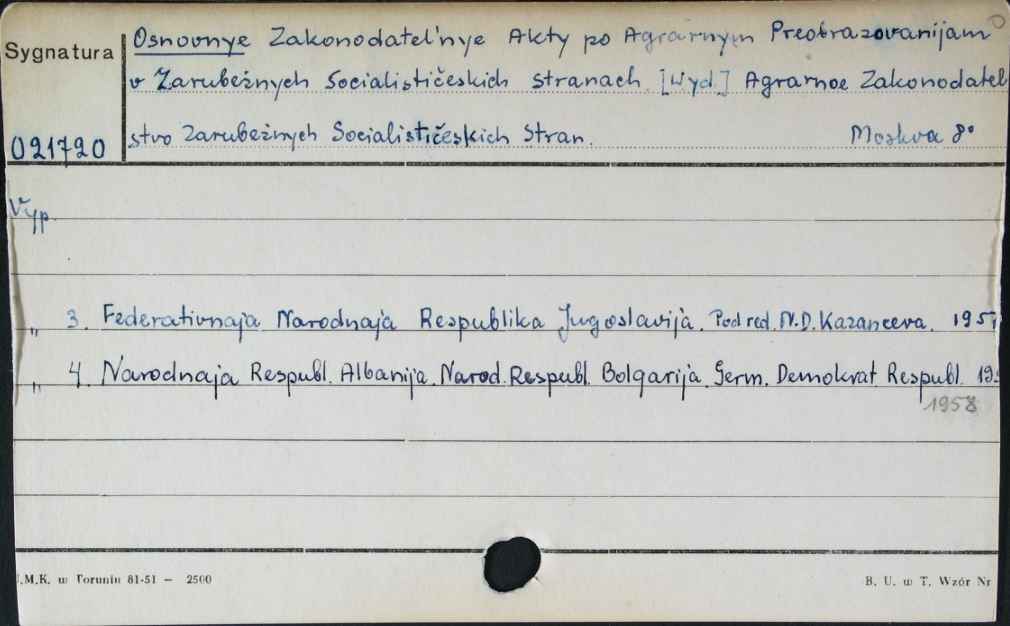 Sygnatura
021720
Osnovnye Zakonodatel'nye Akty po Agrarnym Preobrazovanijam
v Zarubežnych Socialističeskich stranach. [Wyd.] Agrarnoe Zakonodatel
stvo Zarubežnych Socialističeskich Stran. Moskva 8°
Vyp.
„ 3. Federativnaja Narodnaja Respublika Jugoslavija. Pod red. N.D. Kazanceva. 195
„ 4. Narodnaja Respubl. Albanija. Narod. Respubl. Bolgarija. Germ. Demokrat. Respubl. 19
1958
U.M.K. w Toruniu 81-51 — 2500
B. U. w T. Wzór Nr